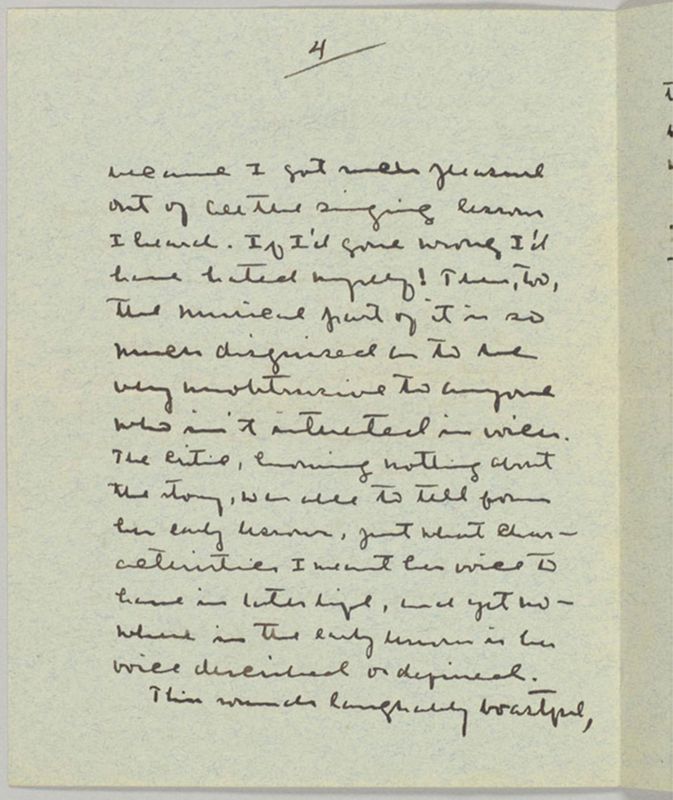 4
because I got much pleasure
out of all the singing lessons
I heard. If I'd gone wrong I'd
have hated myself! Then, too,
the musical part of it is so
much disguised as to be
very unobtrusive to anyone
who isn't interested in voices.
The critic, knowing nothing about
the story, was able to tell from
her early lessons, just what char-
acteristics I meant her voice to
have in later life, and yet no-
where in the early lessons is her
voice described or defined.
This sounds laughably boastful,